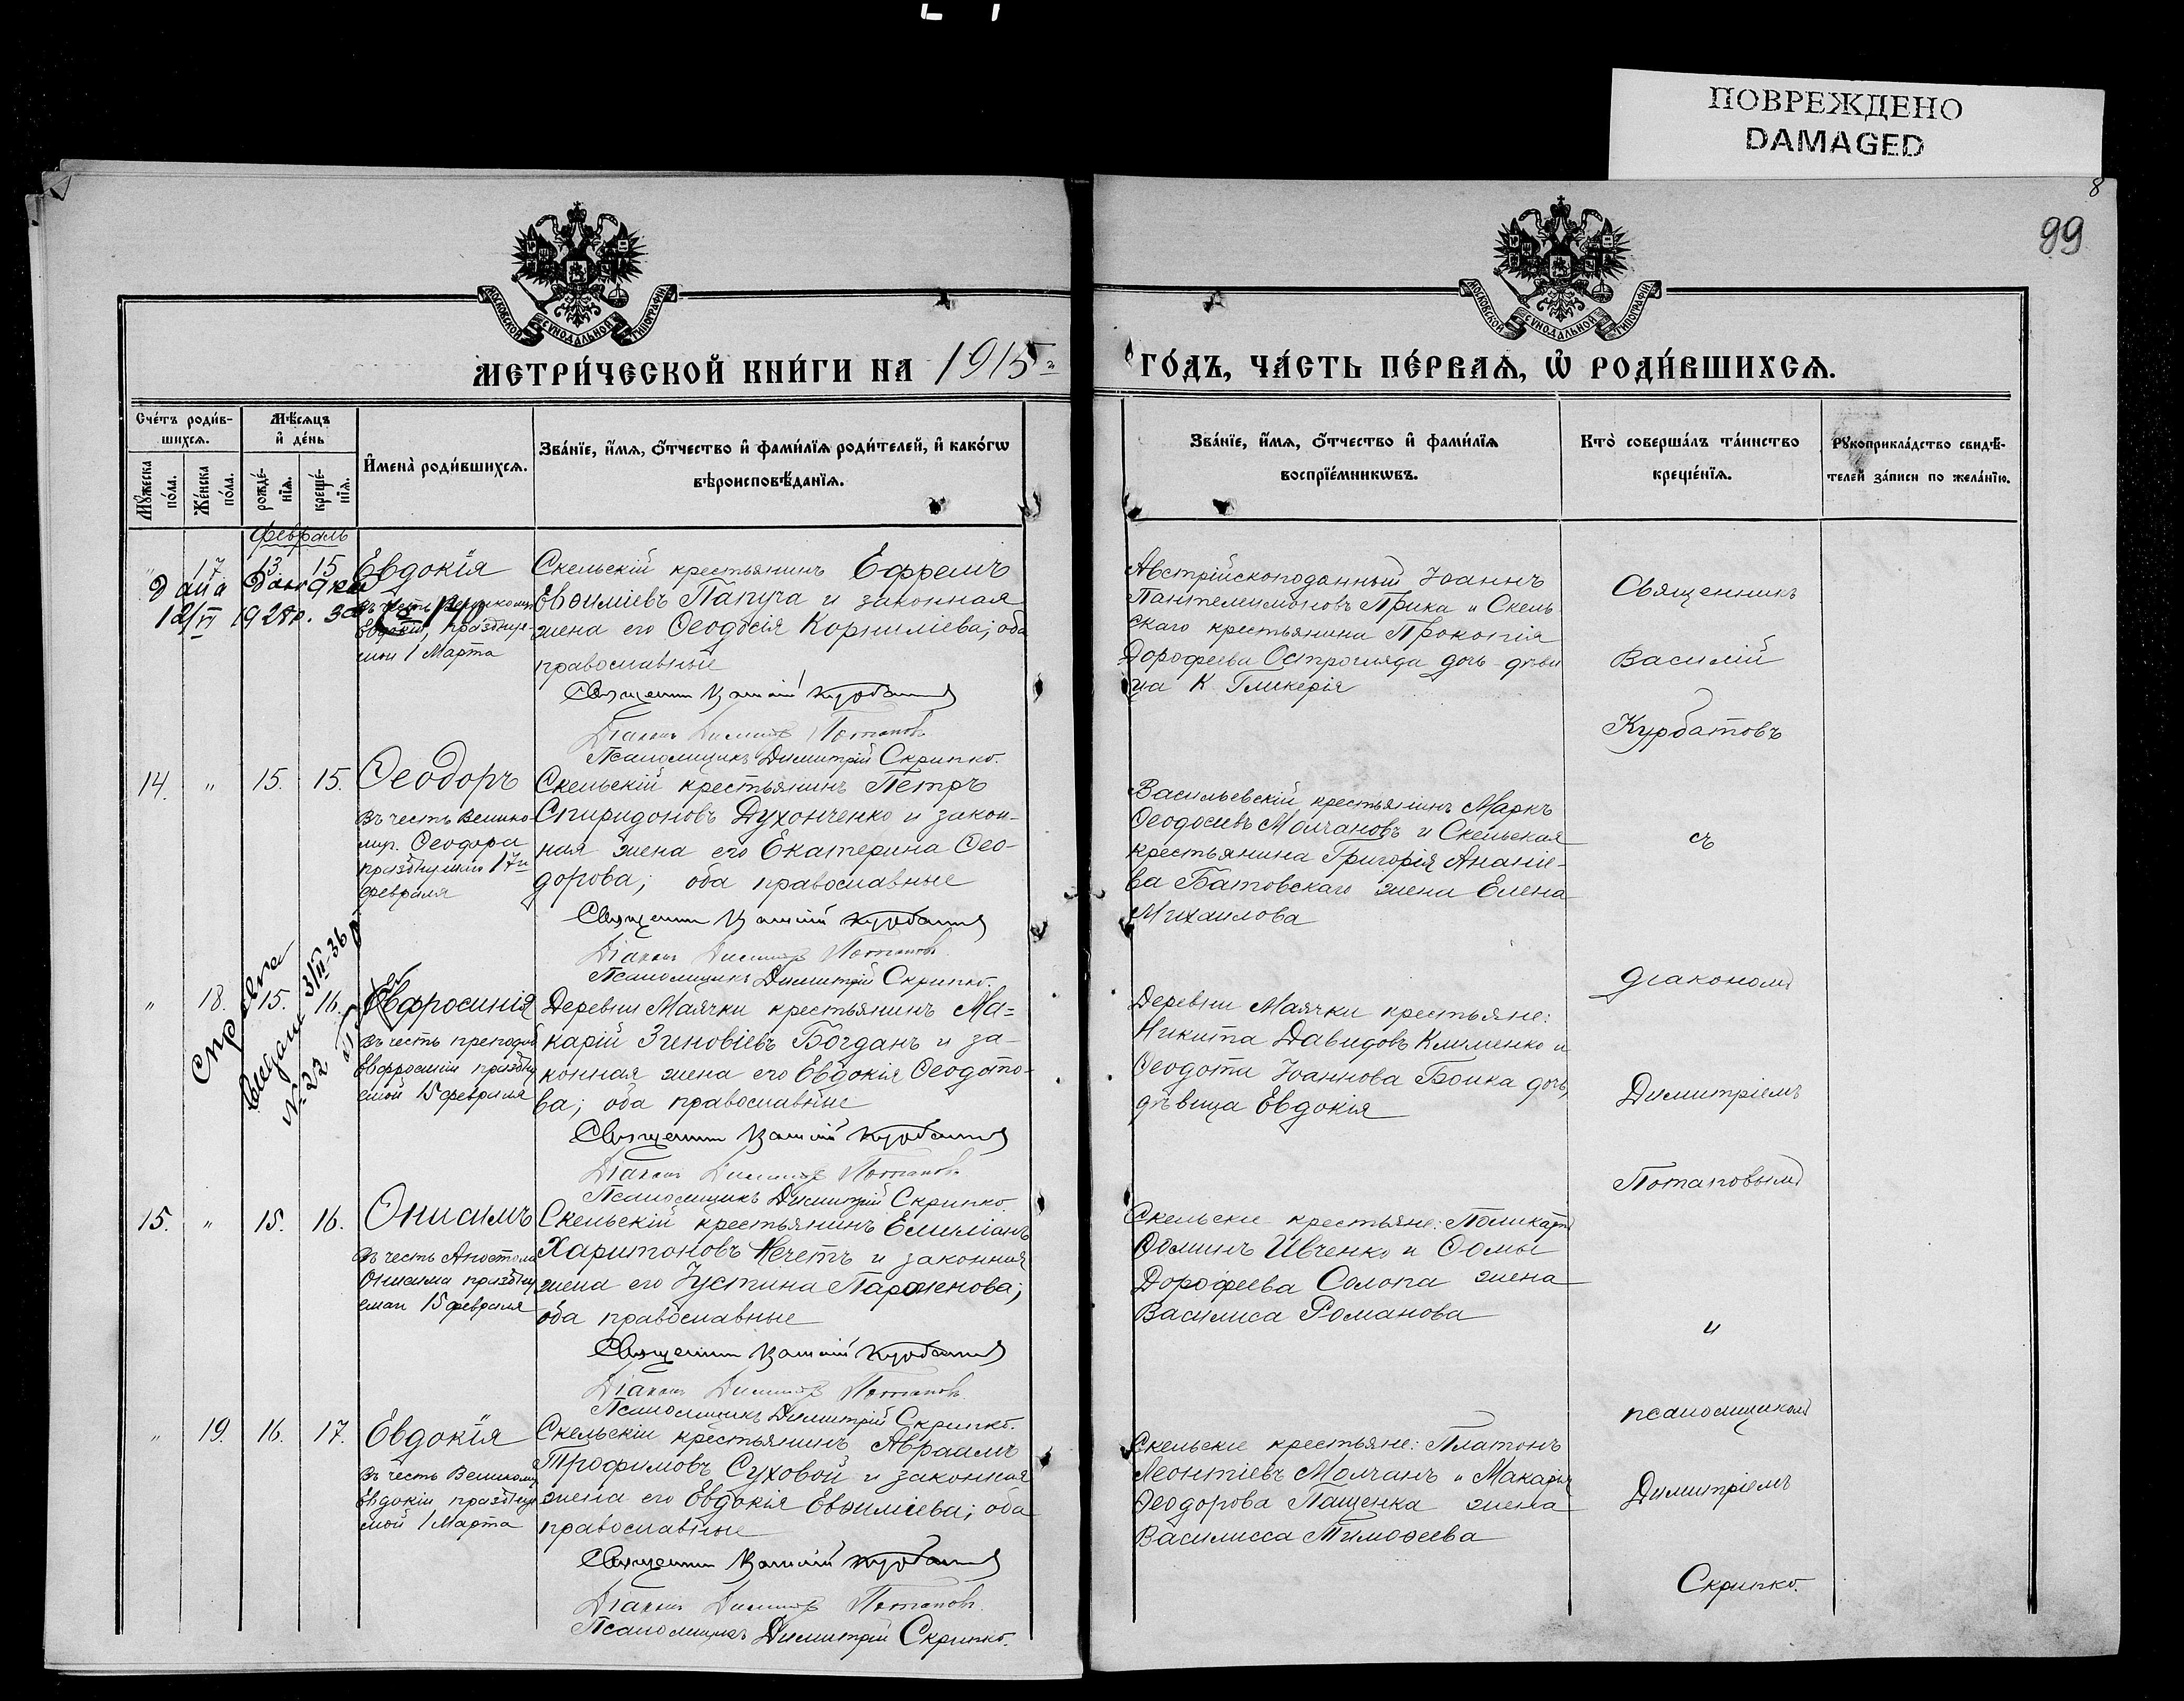 ПОВРЕЖДЕНО
DAMAGED
8
99
МОСКОВСКОЙ СѴНОДАЛЬНОЙ ТИПОГРАФІИ
МОСКОВСКОЙ СѴНОДАЛЬНОЙ ТИПОГРАФІИ
МЕТРИ́ЧЕСКОЙ КНИ́ГИ НА 1915
ГО́ДЪ, ЧА́СТЬ ПЕ́РВАѦ, Ѽ РОДИ́ВШИХСѦ.
Сче́тъ роди́в-
шихсѧ.
Мѣ́сѧцъ
и҆ де́нь
Мꙋ́жеска
по́ла.
Же́нска
по́ла.
рожде́-
нїѧ.
креще́-
нїѧ.
И҆мена̀ роди́вшихсѧ.
Зва́нїе, и҆́мѧ, ѻ҆́тчество и҆ фами́лїѧ роди́телей, и҆ како́гѡ
вѣроисповѣ́данїѧ.
Зва́нїе, и҆́мѧ, ѻ҆́тчество и҆ фами́лїѧ
воспрїе́мникѡвъ.
Кто̀ соверша́лъ та́инство
креще́нїѧ.
Рꙋкоприкла́дство свидѣ́-
телей за́писи по жела́нїю.
Февраль
" 17 13 15 Евдокія
Дана
12/VI
Въ честь
праздъуе-
мой 1 Марта
Скельскій крестьянинъ Ефремъ
Евѳиміевъ Папуча и законная
жена его Ѳеодосія Корниліева; оба
православные
Священникъ Василій Курбатовъ
Діаконъ Димитрій Потаповъ
Псаломщикъ Димитрій Скрипко.
Австрійскоподанный Іоаннъ
Пантелеимоновъ Прика и Скель-
скаго крестьянина Прокопія
Дорофеева Остроглядa дочь-дѣви
ца К Гликерія
Священникъ
Василій
Курбатовъ
14. " 15. 15. Ѳеодоръ
Въ честь Велико-
муч. Ѳеодора
празднуемаго 17го
февраля
Скельскій крестьянинъ Петръ
Спиридоновъ Духонченко и закон-
ная жена его Екатерина Ѳео-
дорова; оба православные
Священникъ Василій Курбатовъ
Діаконъ Димитрій Потаповъ
Псаломщикъ Димитрій Скрипко.
Васильевскій крестьянинъ Маркъ
Ѳеодосіевъ Молчановъ и Скельская
крестьянина Григорія Ананіе-
ва Батовскаго жена Елена
Михаилова
съ
діакономъ
" 18. 15. 16. Евфросинія
Справка
выдана 3/II-36
№ 22
Въ честь преподоб
Евфросиніи праздну
емой 15 февраля
Деревни Маячки крестьянинъ Ма-
карій Зиновіевъ Богданъ и за-
конная жена его Евдокія Ѳеодото-
ва; оба православные
Священникъ Василій Курбатовъ
Діаконъ Димитрій Потаповъ
Псаломщикъ Димитрій Скрипко.
Деревни Маячки крестьяне:
Никита Давидовъ Клименко и
Ѳеодота Іоаннова Боика дочь
дѣвица Евдокія
Димитріемъ
Потаповымъ
15. " 15. 16. Онисимъ
Въ честь Апостола
Онисима праздну
емаго 15 февраля
Скельскій крестьянинъ Емиліанъ
Харитоновъ Нечетъ и законная
жена его Іустина Парѳенова;
оба православные
Священникъ Василій Курбатовъ
Діаконъ Димитрій Потаповъ
Псаломщикъ Димитрій Скрипко.
Скельскіе крестьяне: Поликарпъ
Ѳоминъ Ивченко и Ѳомы
Дорофеева Солопа жена
Василиса Романова
и
псаломщикомъ
" 19. 16. 17. Евдокія
Въ честь Великому
Евдокіи, праздуе
мой 1 Марта
Скельскій крестьянинъ Авраамъ
Трофимовъ Суховой и законная
жена его Евдокія Евѳиміева; оба
православные
Священникъ Василій Курбатовъ
Діаконъ Димитрій Потаповъ
Псаломщикъ Димитрій Скрипко.
Скельскіе крестьяне: Платонъ
Леонтіевъ Молчанъ и Макарія
Ѳеодорова Пащенка жена
Василисса Тимоѳеева
Димитріемъ
Скрипко.